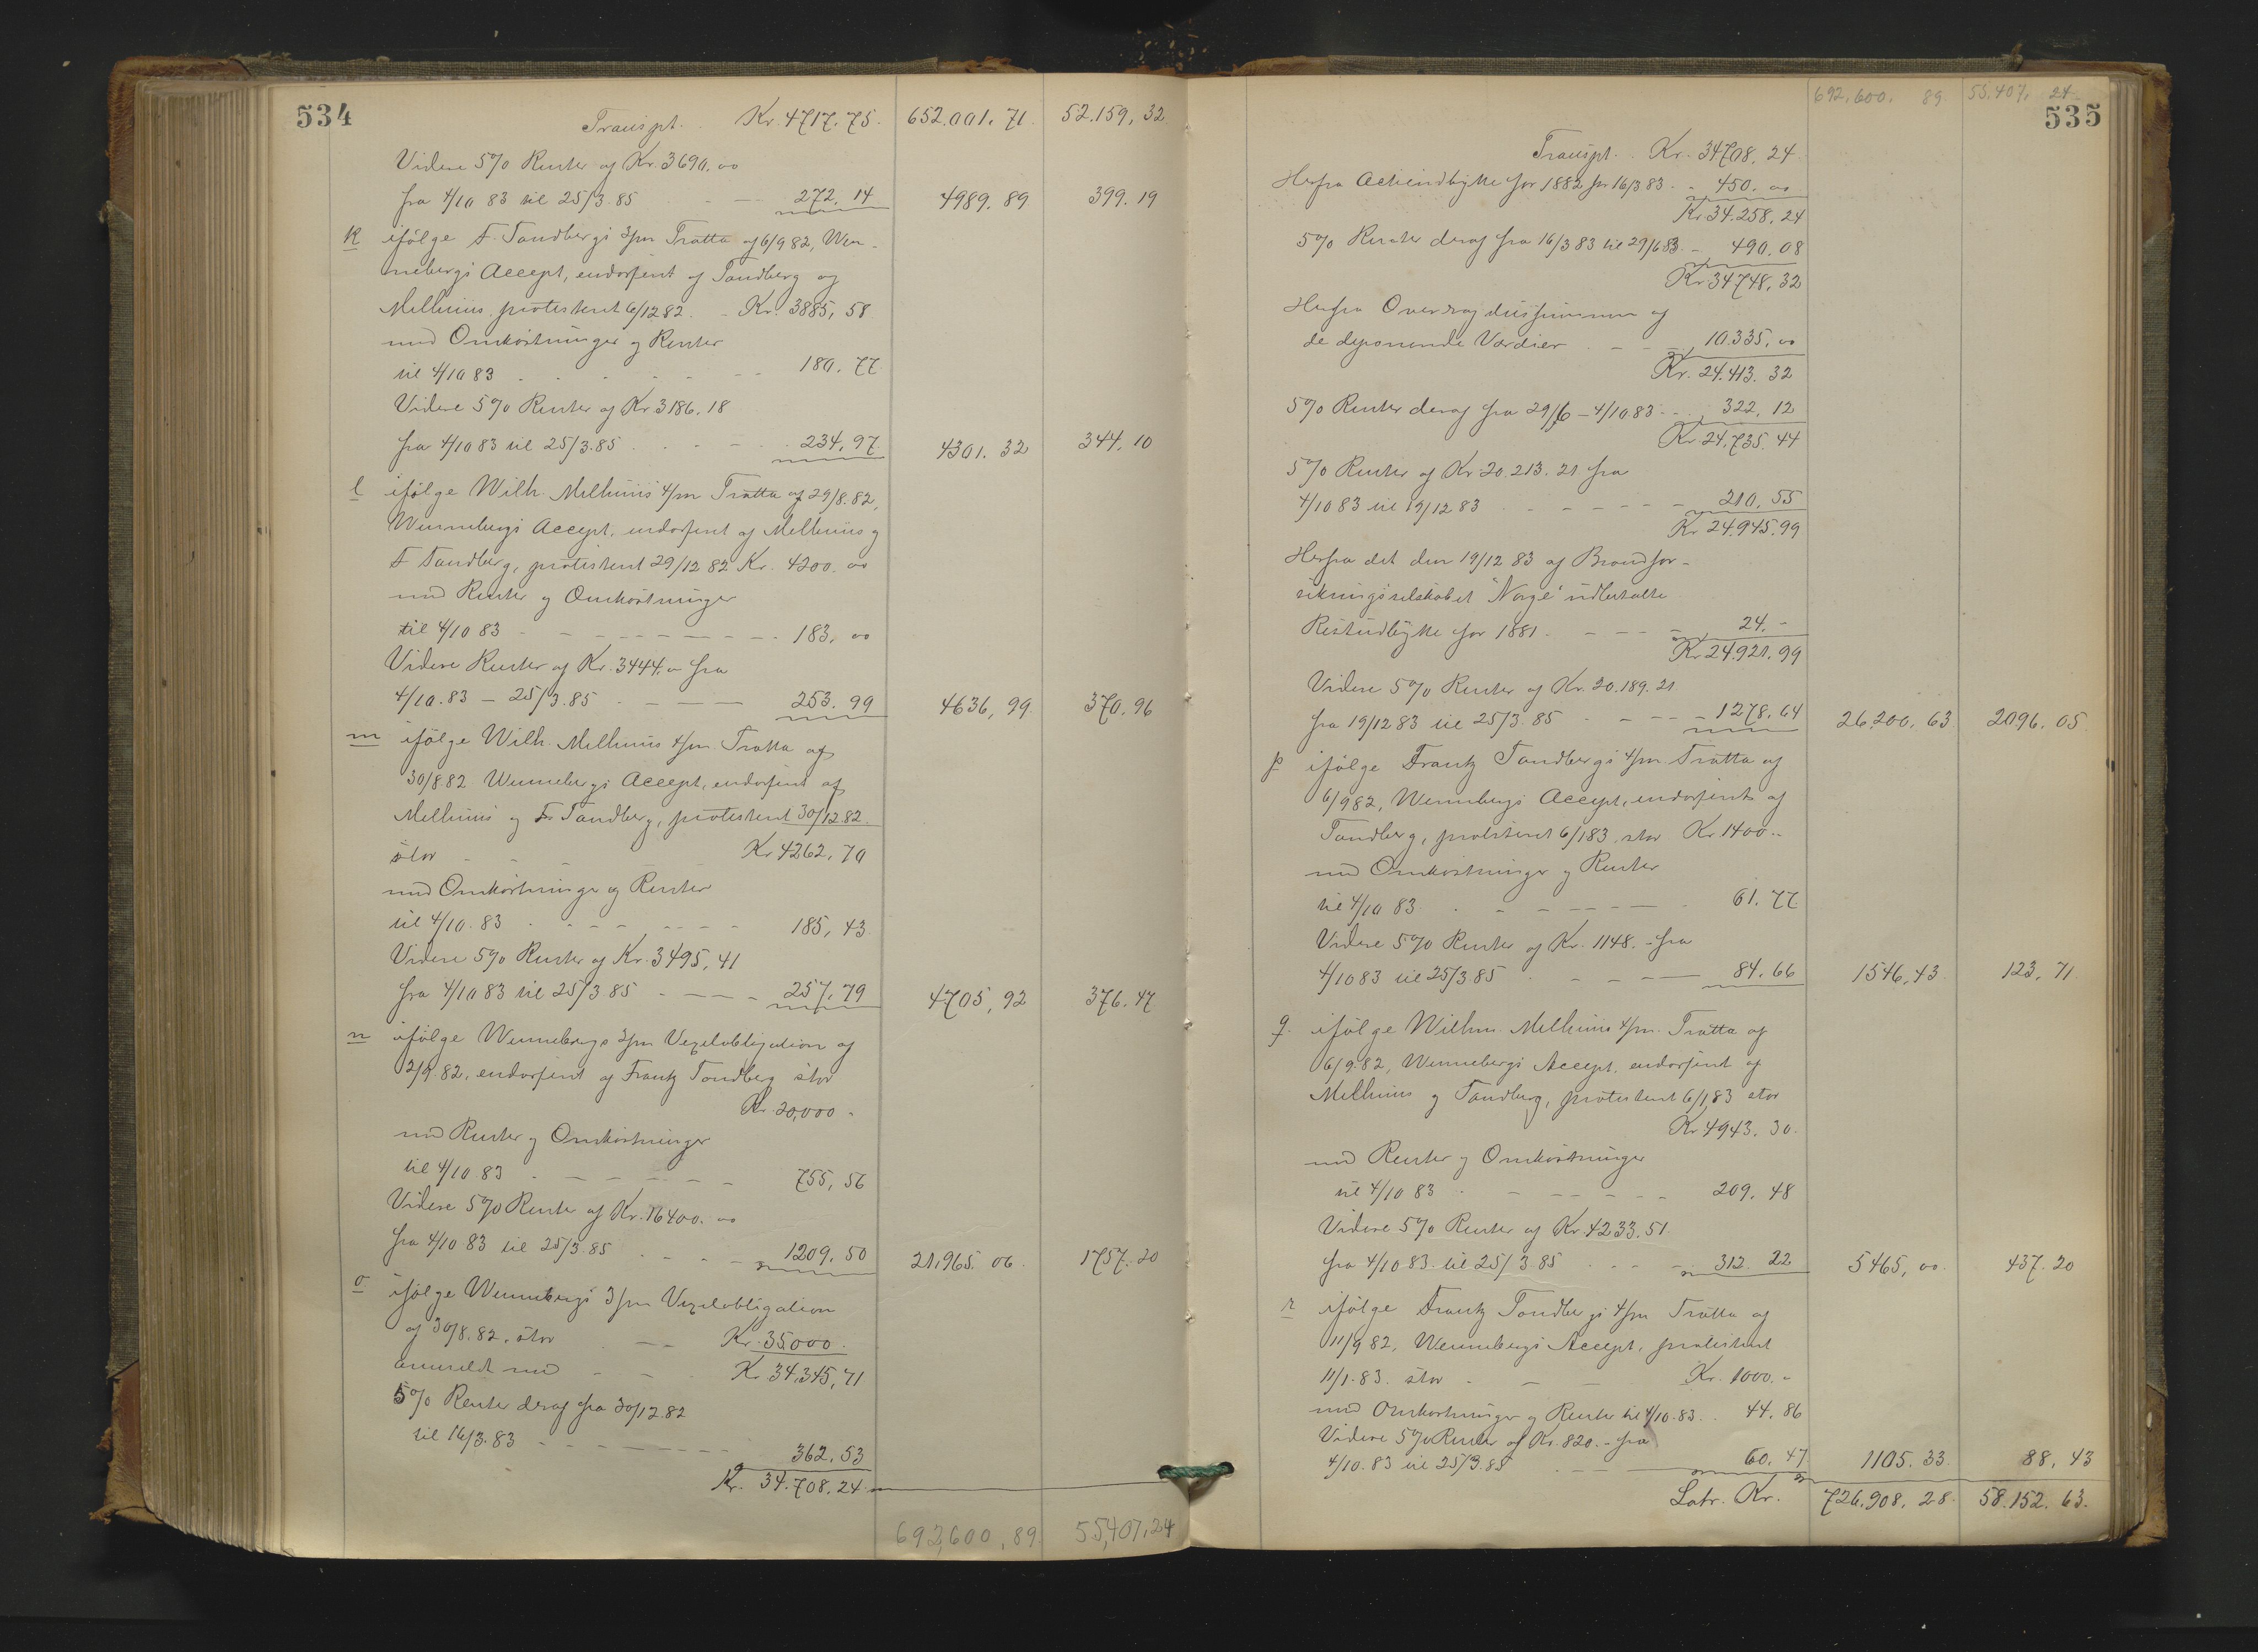 534
Transpt. Kr. 4717.75. 652.001.71. 52.159,32
Videre 5% Renter af Kr. 3690,00
fra 4/10 83 til 25/3.85 272.14 4989.89 399.19
k ifölge F. Tandbergs 3/m Tratta af 6/9 82, Wen-
nebergs Accept, endosseret af Tandberg og
Melhuus, protesteret 6/12 82. Kr. 3885,58
med Omkostninger og Renter
til 4/10 83 180.77
Videre 5% Renter af Kr 3186.18
fra 4/10 83 til 25/3.85 234,97 4301.32 344.10
l ifölge Wilh. Melhuus 4/m Tratta af 29/8.82,
Wennebergs Accept, endosseret af Melhuus og
F Tandberg, protesteret 29/12 82 Kr. 4200.00
med Renter og Omkostninger
til 4/10 83 183,00
Videre Renter af Kr. 3444.- fra
4/10.83 - 25/3.85 253.99 4636,99 370.96
m ifölge Wilh. Melhuus 4/m Tratta af
30/8.82 Wennebergs Accept, endosseret af
Melhuus og Fr Tandberg, protesteret 30/12.82.
stor Kr 4262,70
med Omkostninger og Renter
til 4/10.83 185,43.
Videre 5% Renter af Kr. 3495,41
fra 4/10 83 til 25/3 85 257.79 4705,92 376.47.
n ifölge Wennebergs 3/m Vexelobligation af
2/9.82, endosseret af Frantz Tandberg stor
Kr. 20,000 -
med Renter og Omkostninger
til 4/10.83 755,56
Videre 5% Renter af Kr. 16400.00
fra 4/10 83 til 25/3.85 1209.50 21.965.06. 1757.20
o ifölge Wennebergs 3/m Vexelobligation
af 30/8.82, stor Kr. 35000.
anmeldt med Kr. 34.345,71
5% Renter deraf fra 30/12.82
til 16/3.83 362.53
Kr. 34.708.24
692,600,89 55,407,24
692,600. 89 55.407, 24
535
Transpt. Kr. 34708.24
Herfra Actieudbytte for 1882 pr 16/3 83 450.00
Kr 34.258.24
5% Renter deraf fra 16/3 83 til 29/6 83 490.08
Kr 34748,32
Herfra Overdragelsessummen af
de deponerede Værdier 10.335,00
Kr. 24.413.32
5% Renter deraf fra 29/6 - 4/10 83 322.12
Kr. 24.735.44
5% Renter af Kr. 20.213.21 fra
4/10 83 til 19/12 83 210.55
Kr 24.945.99
Herfra det den 19/12 83 af Brandfor-
sikringsselskabet "Norge" udbetalte
Restudbytte for 1881 24.-
Kr 24.921.99
Videre 5% Renter af Kr. 20.189.21
fra 19/12 83 til 25/3 85 1278.64 26.200.63 2096.05
p ifölge Frantz Tandbergs 4/m Tratta af
6/9 82, Wennebergs Accept, endosseret af
Tandberg, protesteret 6/1 83, stor Kr 1400..
med Omkostninger og Renter
til 4/10 83 61.77
Videre 5% Renter af Kr. 1148.- fra
4/10 83 til 25/3 85 84.66 1546,43 123,71.
q. ifölge Wilhm. Melhuus 4/m Tratta af
6/9.82, Wennebergs Accept, endosseret af
Melhuus og Tandberg, protesteret 6/1 83 stor
Kr 4943.30.
med Renter og Omkostninger
til 4/10 83 209.48
Videre 5% Renter af Kr 4233.51
fra 4/10 83 til 25/3 85 312.22 5465,00. 437.20
r ifölge Frantz Tandbergs 4/m Tratta af
11/9 82, Wennebergs Accept, protesteret
11/1.83. stor Kr. 1000.-
med Omkostninger og Renter til 4/10.83. 44.86
Videre 5% Renter af Kr. 820.- fra
4/10.83 til 25/3.85 60.47 1105.33 88,43
Latr. Kr. 726.908,28. 58.152.63.